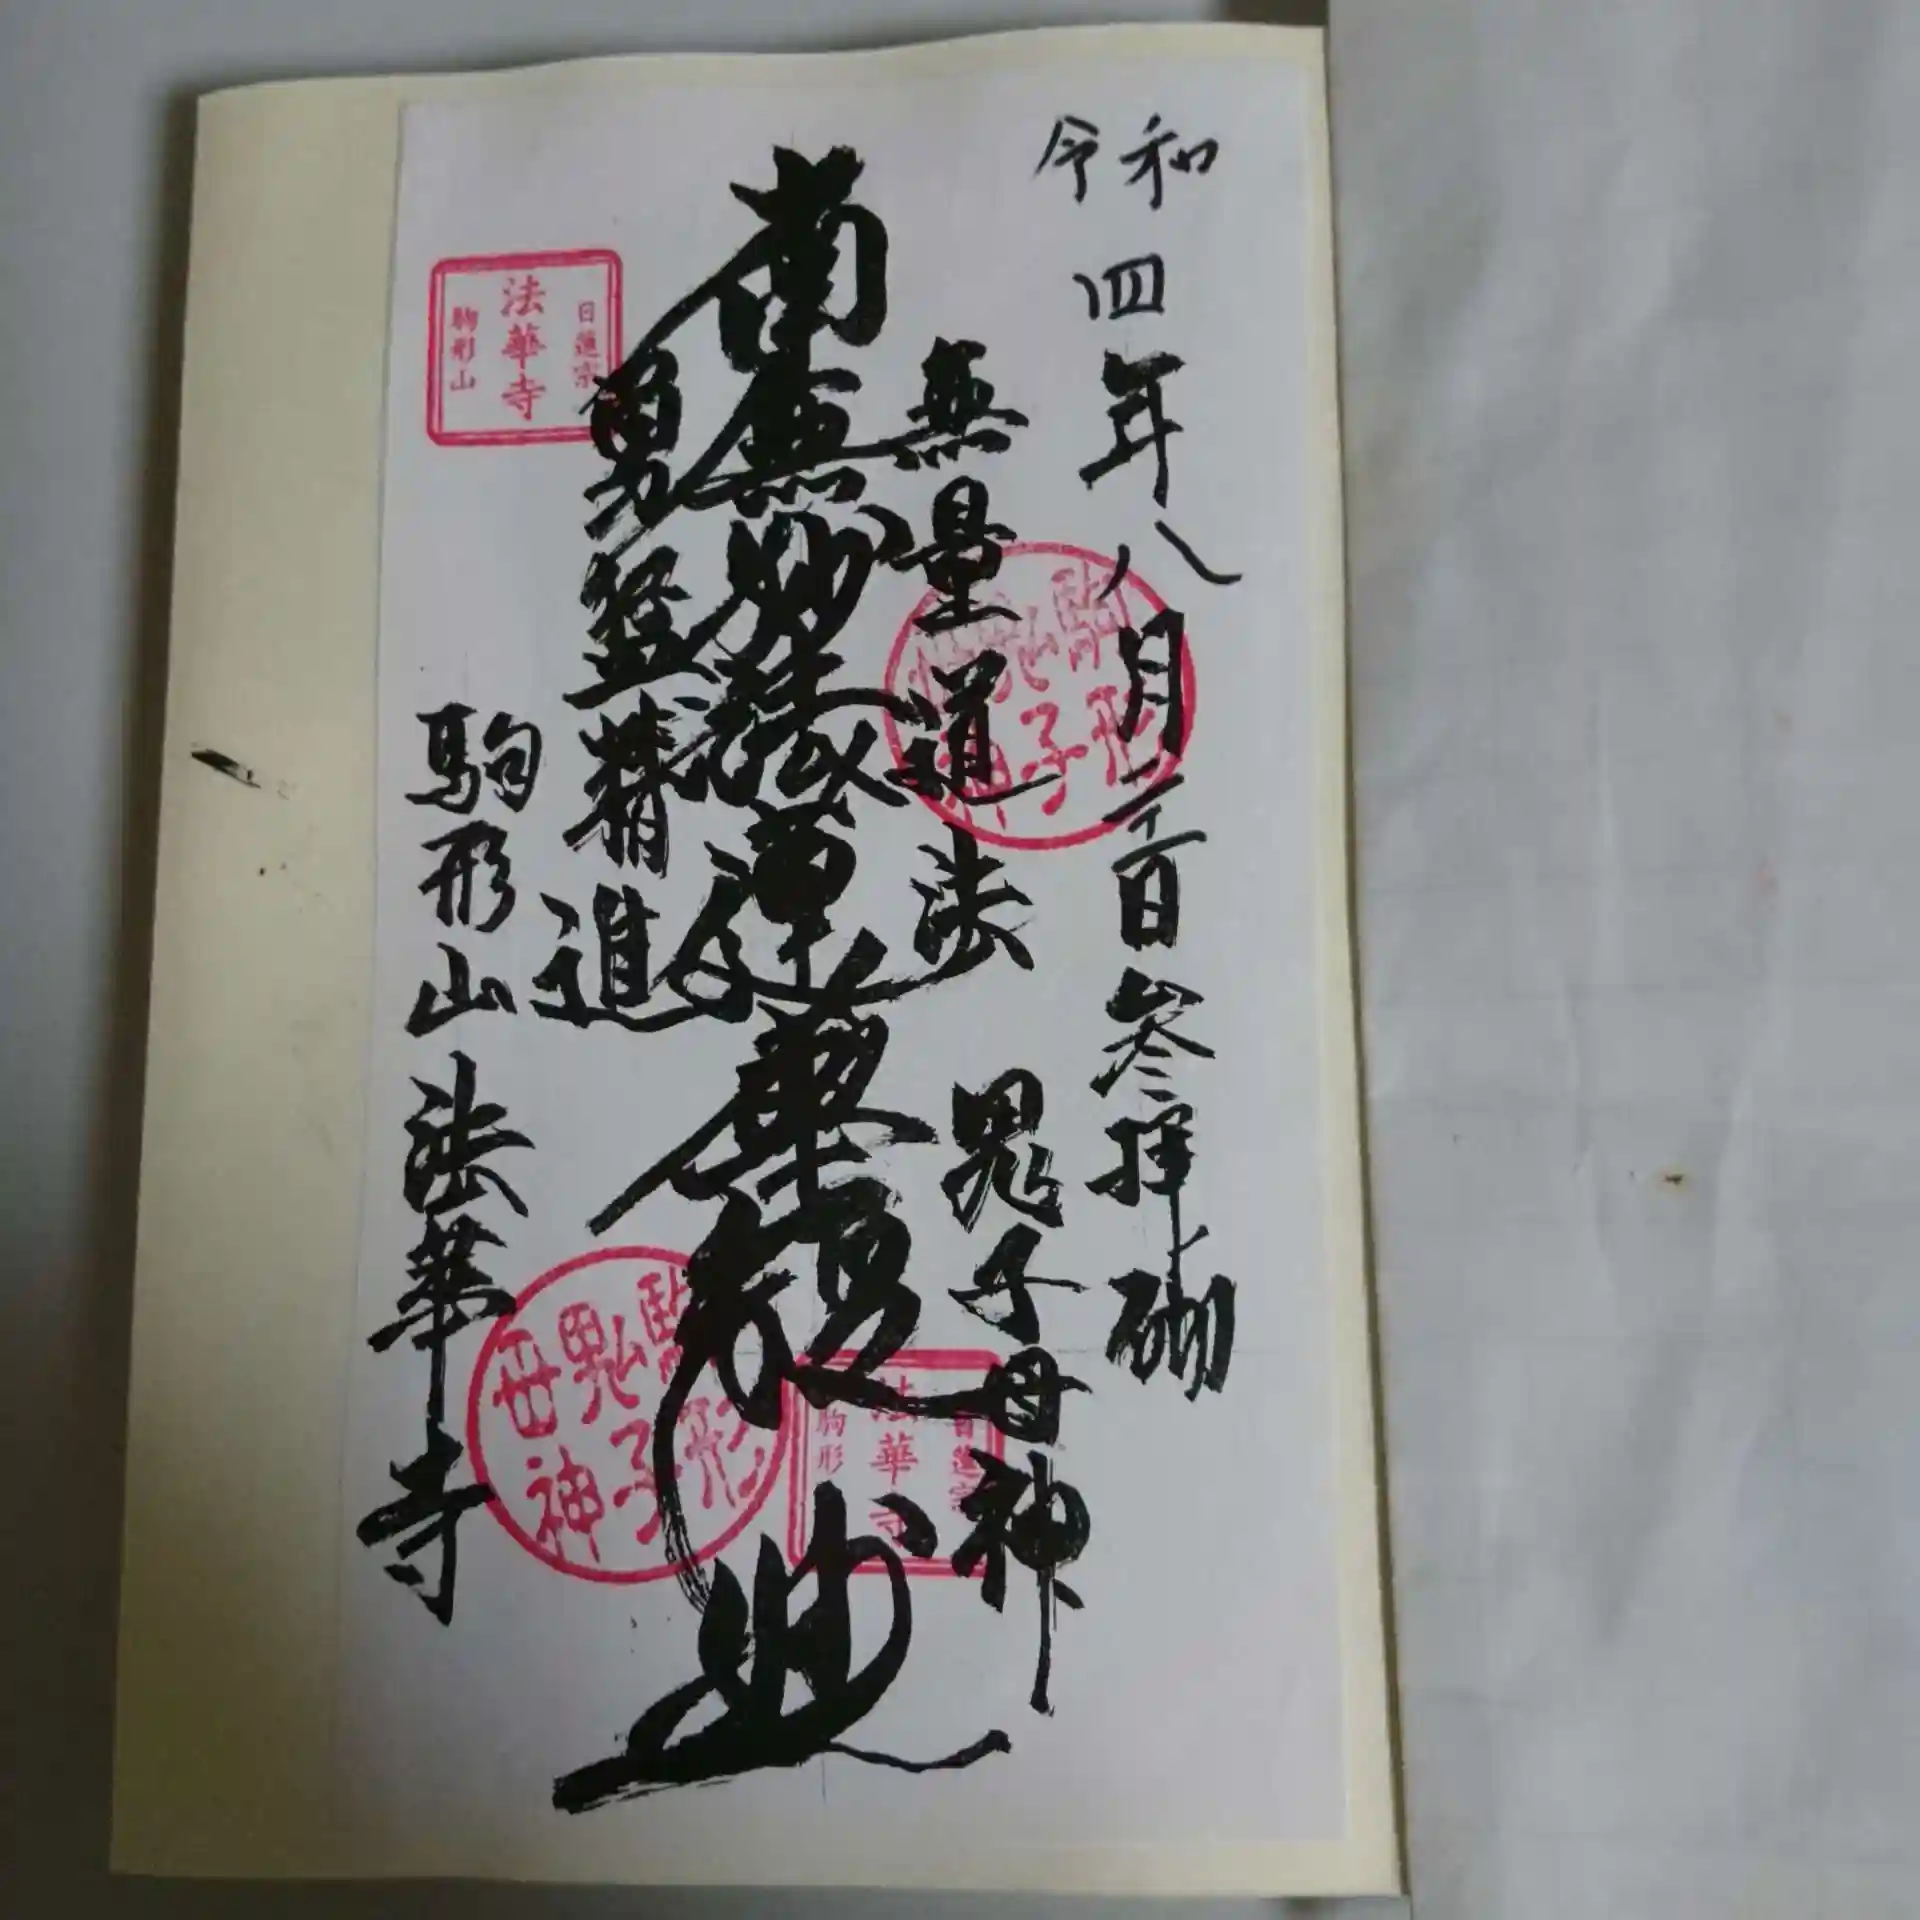 令和四年八月二日参拝砌
無量道法 鬼子母神
南無妙法蓮華経
勇猛精進
駒形山法華寺
日蓮宗
法華寺
駒形山
駒形
鬼子
母神
日蓮宗
法華寺
駒形